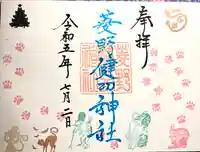 奉拝
菱野健功神社
令和五年 七月二日